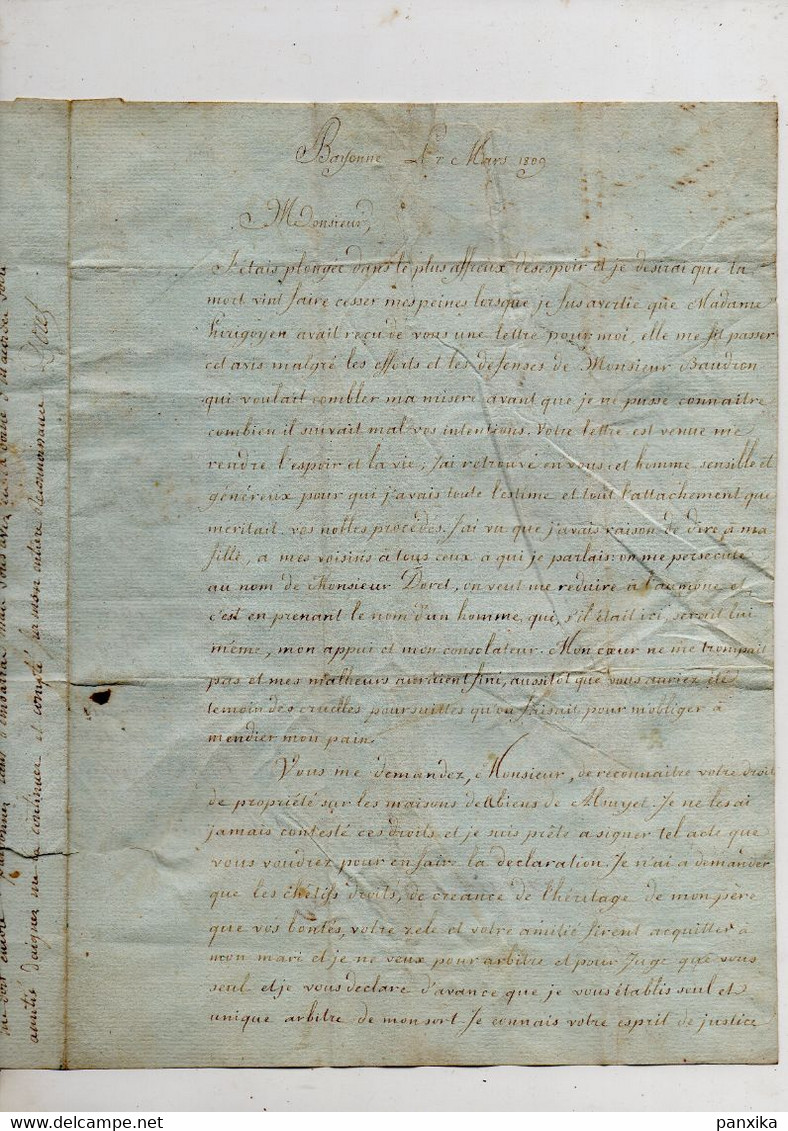 Bayonne Le 7 Mars 1809
Monsieur,
J'étais plongée dans le plus affreux désespoir et je desirai que la
mort vint faire cesser mes peines lorsque je fus avertie que Madame
avait reçu de vous une lettre pour moi, elle me fit passer
cet avis malgré les efforts et les défenses de Monsieur Baudron
qui voulait combler ma misere avant que je ne pusse connaître
combien il suivait mal vos intentions. Votre lettre est venue me
rendre l'espoir et la vie; J'ai retrouvé en vous cet homme sensible et
généreux pour qui j'avais toute l'estime et tout l'attachement que
méritait vos nobles procédés. J'ai vu que j'avais raison de dire a ma
fille, a mes voisins à tous ceux a qui je parlais: on me persecute
au nom de Monsieur Doret, on veut me reduire à l'aumone et
c'est en prenant le nom d'un homme, que, s'il était ici, serait lui
même, mon appui et mon consolateur. Mon cœur ne me trompait
pas et mes malheurs auraient fini, aussitôt que vous auriez été
temoin des cruelles poursuittes qu'on faisait pour m'obliger à
mendier mon pain.
Vous me demandez, Monsieur, de reconnaitre votre droit
de propriété sur les maisons et biens de . Je ne les ai
jamais contesté ces droits et je suis prête a signer tel acte que
vous voudrez pour en faire la déclaration. Je n'ai a demander
que les chétifs droits, de creance de l'héritage de mon père
que vos bontés, votre zele et votre amitié firent acquitter à
mon mari et je ne veux pour arbitre et pour Juge que vous
seul et je vous déclare d'avance que je vous établis seul et
unique arbitre de mon sort. Je connais votre esprit de justice
amitié daignez me la continuer et compté sur mon entiere reconnaissance
panxika